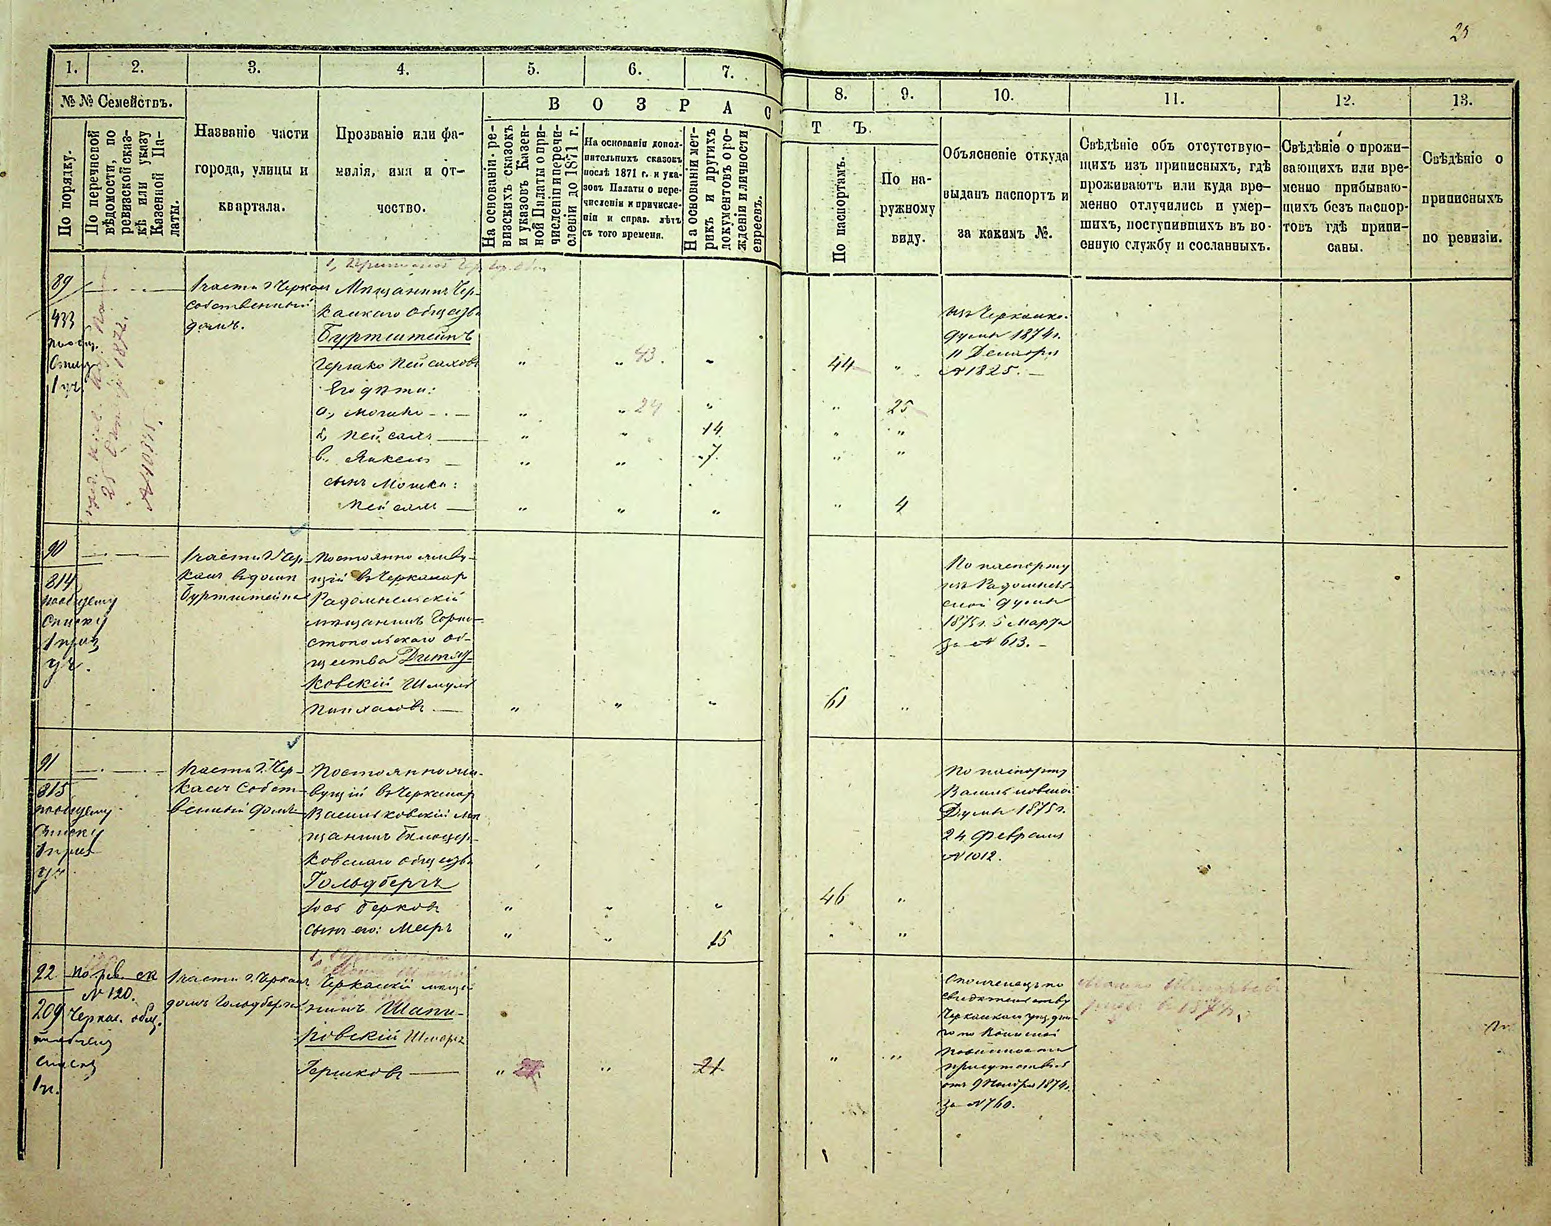 25
1. 2. 3. 4. 5. 6. 7. 8. 9. 10. 11. 12. 13.
№ № Семействъ.
По порядку.
По перечневой вѣдомости, по ревизской сказкѣ или указу Казенной Палаты.
Названіе части
города, улицы и
квартала.
Прозваніе или фа-
милія, имя и от-
чество.
В О З Р А С Т Ъ.
На основаніи ре-
визскихъ сказокъ
и указовъ Казен-
ной Палаты о при-
численіи и перечи-
сленіи до 1871 г.
На основаніи допол-
нительныхъ сказокъ
послѣ 1871 г. и ука-
зовъ Палаты о пере-
численіи и причисле-
ніи и справ. лѣтъ
съ того времени.
На основаніи мет-
рикъ и другихъ
документовъ о ро-
жденіи и личности
евреевъ.
По паспортамъ.
По на-
ружному
виду.
Объясненіе откуда
выданъ паспортъ и
за какимъ №.
Свѣдѣніе объ отсутствую-
щихъ изъ приписныхъ, гдѣ
проживаютъ или куда вре-
менно отлучились и умер-
шихъ, поступившихъ въ во-
енную службу и сосланныхъ.
Свѣдѣніе о прожи-
вающихъ или вре-
менно прибываю-
щихъ безъ паспор-
товъ гдѣ припи-
саны.
Свѣдѣніе о
приписныхъ
по ревизіи.
89
433
1 части г. Черкас
собственный
домъ.
Мѣщанинъ Чер-
каскаго общества
Бурштейнъ
Гершко Пейсаховъ
" " 43. " 44 "
Его дѣти:
а, Мошко
" " 24 " " 25
б, Пейсахъ
" " 14 " "
в, Янкель
" " 7 " "
сынъ Мошки:
Пейсахъ
" " " " 4
изъ Черкаско.
думы 1874 г.
11 Декабря
№ 1825.
90
814
по общему
списку
1 части г. Чер-
касъ въ домѣ
Бурштейна
Постоянно живу-
щій въ Черкасахъ
Радомысльскій
мѣщанинъ Горно-
стопольскаго об-
щества Дитят-
ковскій Шмуль
Пинхасовъ
" " " 61 "
По паспорту
изъ Радомысль-
ской думы
1875 г. 5 Марта
за № 613.
91
815
по общему
списку
1 части г. Чер-
касъ собст-
венный домъ
Постоянно жи-
вущій въ Черкасахъ
Васильковскій мѣ
щанинъ Бѣлоцер-
ковскаго общества
Гольдбергъ
Іось Берковъ
" " " 46 "
сынъ его: Меиръ
" " 15 " "
По паспорту
Васильковской
Думы 1875 г.
24 Февраля
№ 1012.
22
209
По рев. ск
№ 120.
Черкас. общ.
1 части г. Черкас
домъ Гольдберга
Черкаскій мѣща
нинъ Шапи-
ровскій Шмерко
Гершковъ
" " 21 " "
Ополченецъ по
свидѣтельству
Черкаскаго уѣздна-
го по Воинской
повинности
присутствія
отъ 9 Ноября 1874 г.
за № 760.